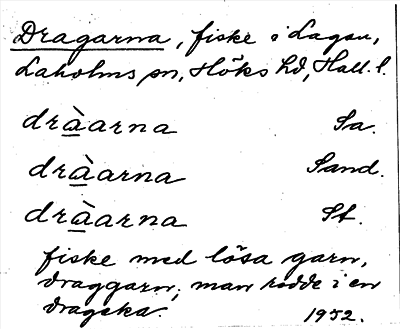 Dragarna, fiske i Lagan,
Laholms sn, Höks hd, Hall. l.
dràarna Sa.
dràarna Sand.
dràarna St.
fiske med lösa garn,
draggarn; man rodde i en
drageka. 1952.